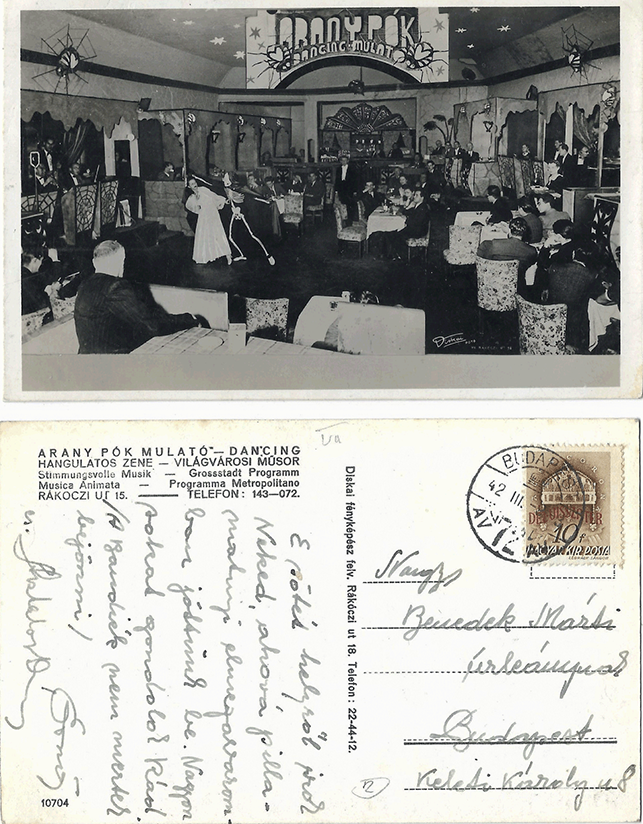 ARANY PÓK
DANCING-MULATÓ
ARANY PÓK MULATÓ — DANCING
HANGULATOS ZENE — VILÁGVÁROSI MŰSOR
Stimmungsvolle Musik — Grossstadt Programm
Musica Animata — Programma Metropolitano
RÁKÓCZI UT 15. — TELEFON: 143—072.
E sötét helyről írok
Neked, ahová pilla-
natnyi elmezavarom-
ban jöttünk be. Nagyon
sokat gondolok Rád
/A Bandiék nem mertek
bejönni/
Diskai fényképész felv. Rákóczi ut 18. Telefon: 22-44-12.
BUDAPEST
42 III.
DÉLVISSZATÉR
10 f
MAGYAR KIR. POSTA
Nagys
Benedek Márti
úrleánynak
Budapest
Keleti Károly u 8
12
10704